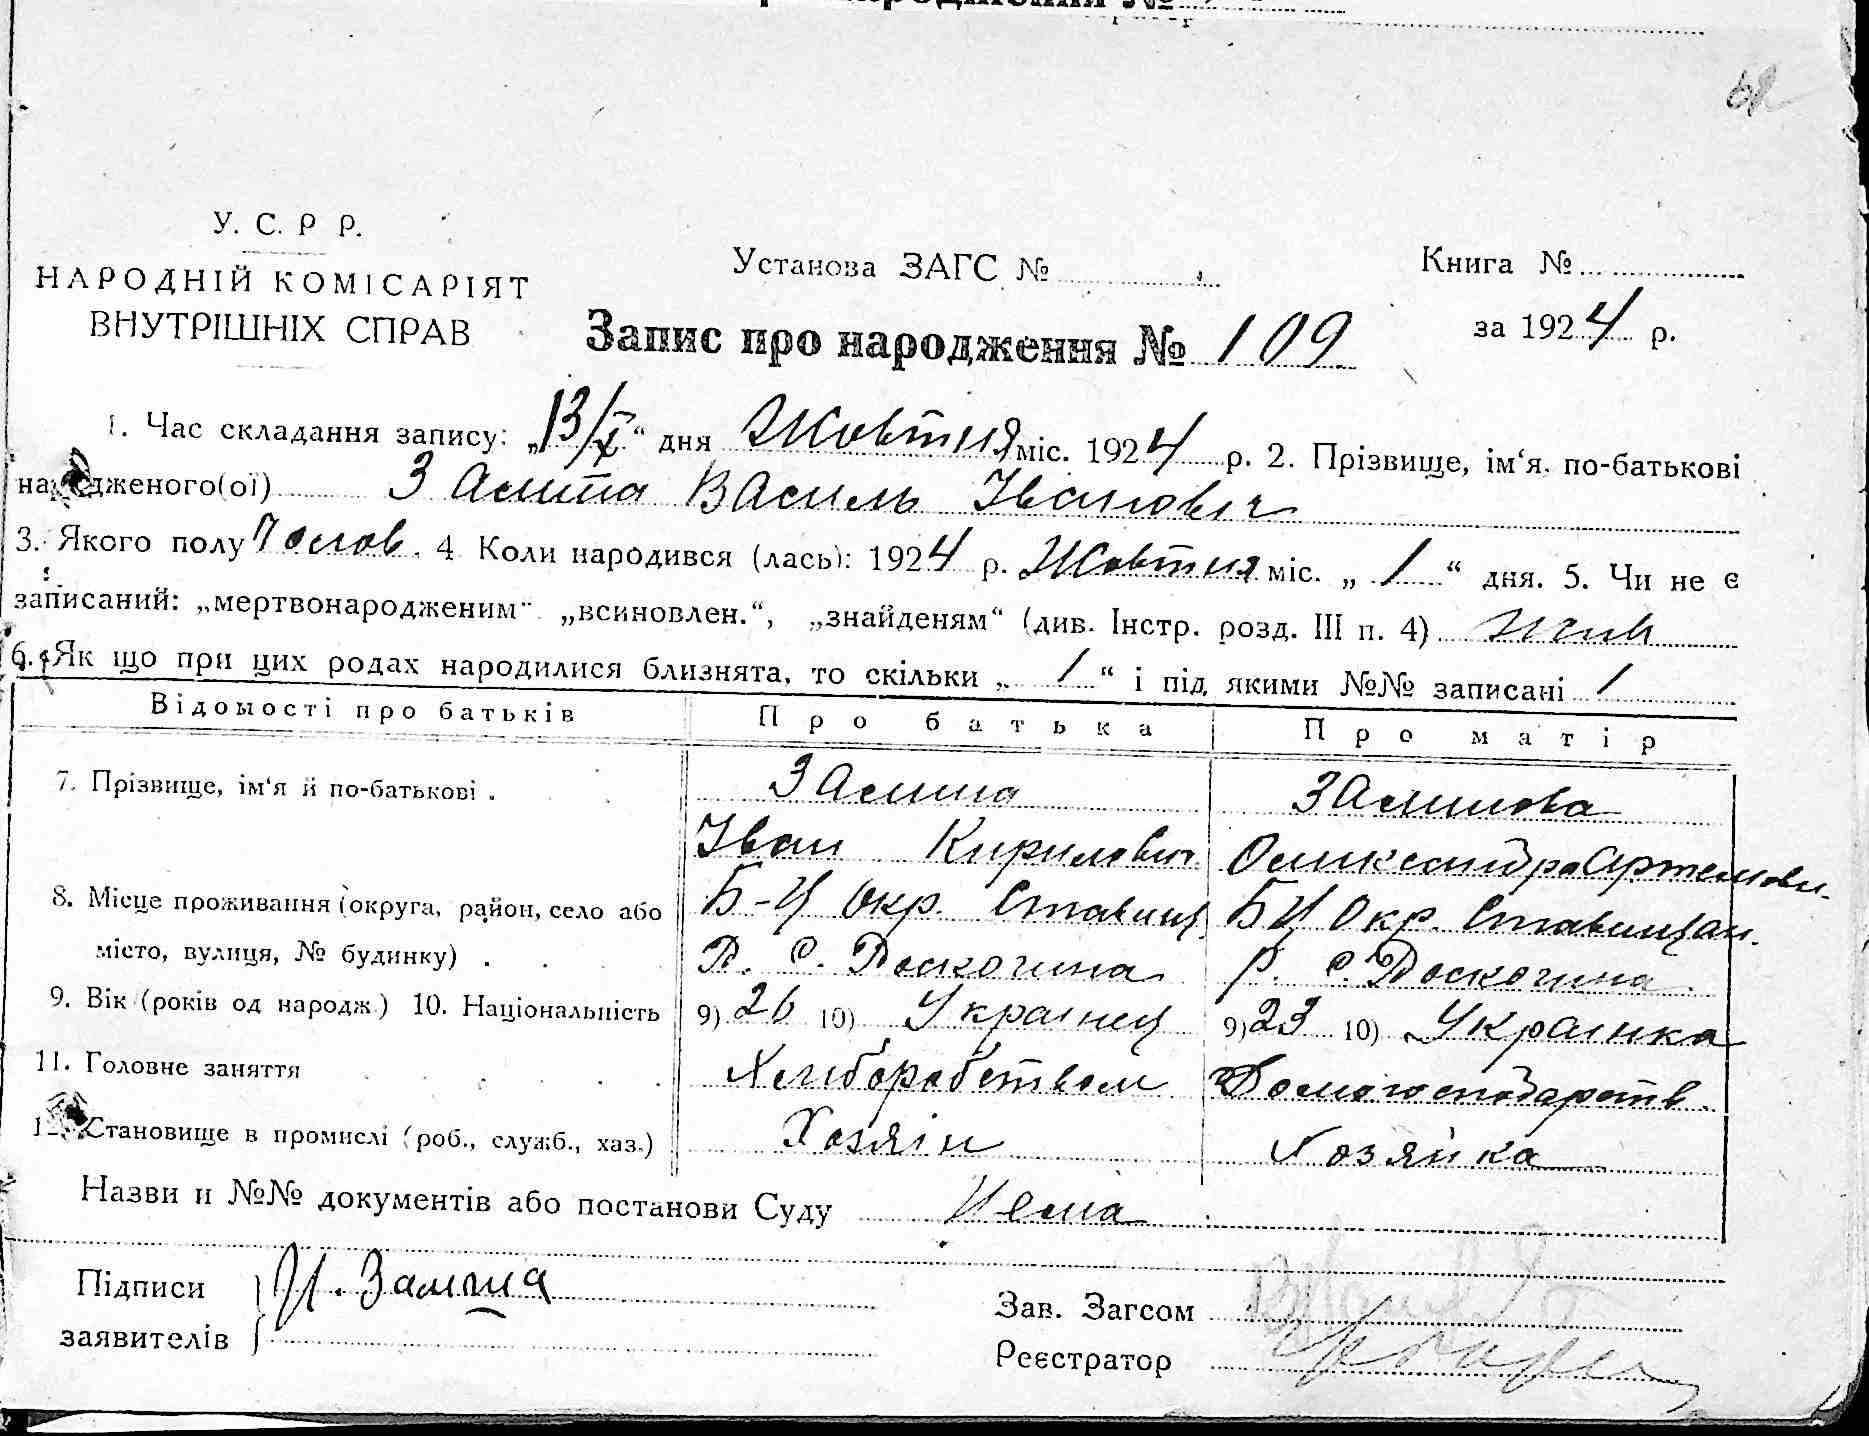 У. С. Р Р.
НАРОДНІЙ КОМІСАРІЯТ
ВНУТРІШНІХ СПРАВ
Установа ЗАГС №
Книга №
за 1924 р.
Запис про народження № 109
1. Час складання запису: „13/X“ дня Жовтня міс. 1924 р. 2. Прізвище, ім‘я, по-батькові
на дженого(ої) Заміта Василь Іванович
3. Якого полу Чолов. 4 Коли народився (лась): 1924 р. Жовтня міс. „1“ дня. 5. Чи не є
записаний: „мертвонародженим“ „всиновлен.“, „знайденям“ (див. Інстр. розд. III п. 4) жив
6. Як що при цих родах народилися близнята, то скільки „1“ і під якими №№ записані 1
Відомості про батьків Про батька Про матір
7. Прізвище, ім‘я й по-батькові .
Іван Кирилович Олександра Артемовн.
8. Місце проживання (округа, район, село або Б-Ц Окр. Ставищ. БЦ Окр. Ставищан.
місто, вулиця, № будинку) . Р. С. Роскочина Р. С. Роскочина
9. Вік (років од народж.) 10. Національність 9) 26 10) Українец 9) 23 10) Українка
11. Головне заняття Хліборобством Домогосподарств.
Становище в промислі (роб., служб., хаз.) Хозяін Хозяйка
Назви и №№ документів або постанови Суду Нема
Підписи
заявителів
И. Заміта
Зав. Загсом
Реєстратор